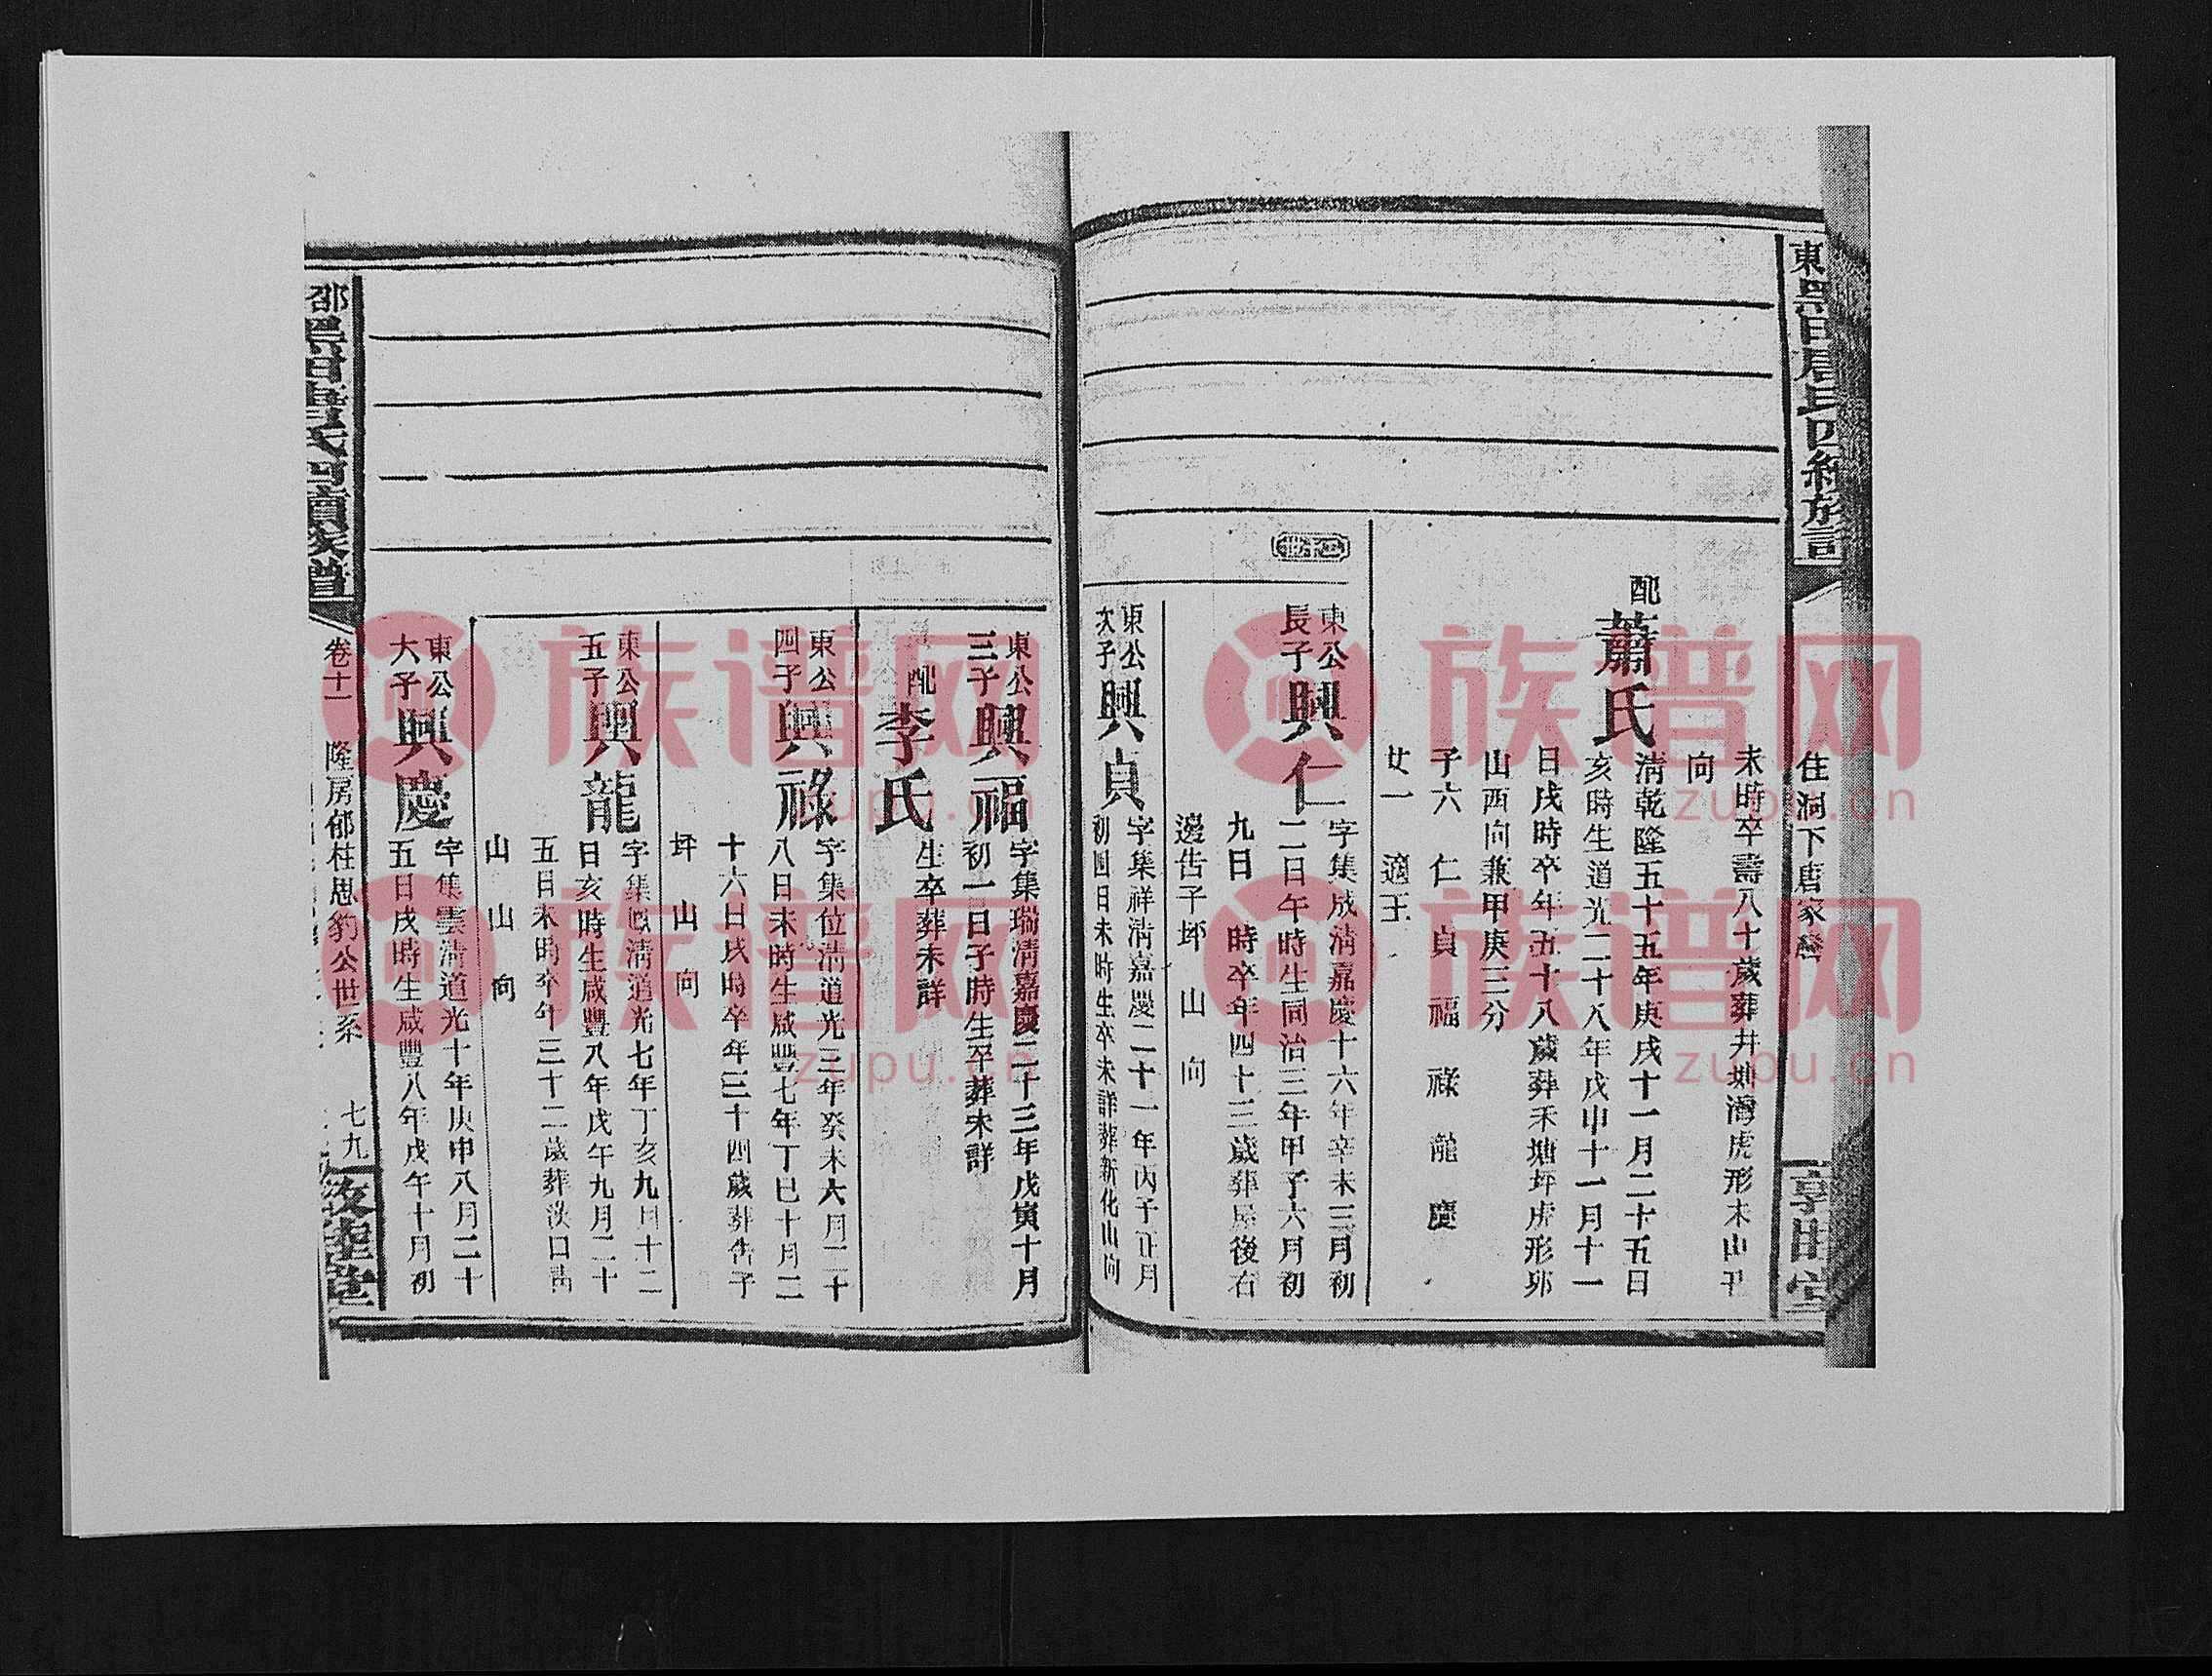 住洞下唐家灣
未時卒壽八十歲葬井塘灣虎形未山丑
向
配蕭氏
清乾隆五十五年庚戌十一月二十五日
亥時生道光二十八年戊申十一月十一
日戌時卒年五十八歲葬禾塘坪虎形
山酉向兼甲庚三分
子六 仁 貞 福 祿 龍 慶
女一 適王
東公
長子
興仁
字集成清嘉慶十六年辛未三月初
二日午時生同治三年甲子六月初
九日 時卒年四十三歲葬屋後右
邊告子坪 山 向
東公
次子
興貞
字集祥清嘉慶二十一年丙子正月
初四日未時生卒未詳葬新化山向
東公
三子
興福
字集瑞清嘉慶二十三年戊寅十月
初一日子時生卒葬未詳
配李氏
生卒葬未詳
東公
四子
興祿
字集位清道光三年癸未六月二十
八日未時生咸豐七年丁巳十月二
十六日戌時卒年三十四歲葬告子
坪 山 向
東公
五子
興龍
字集 清道光七年丁亥九月十二
日亥時生咸豐八年戊午九月二十
五日未時卒年三十二歲葬漢口
山 山 向
東公
六子
興慶
字集雲清道光十年庚申八月二十
五日戌時生咸豐八年戊午十月初
邵 黑田唐氏四續族譜
卷十一 隆房郁柱思豹公世系 七九
敦睦堂
族谱网
zupu.cn
族谱网
zupu.cn
族谱网
zupu.cn
族谱网
zupu.cn